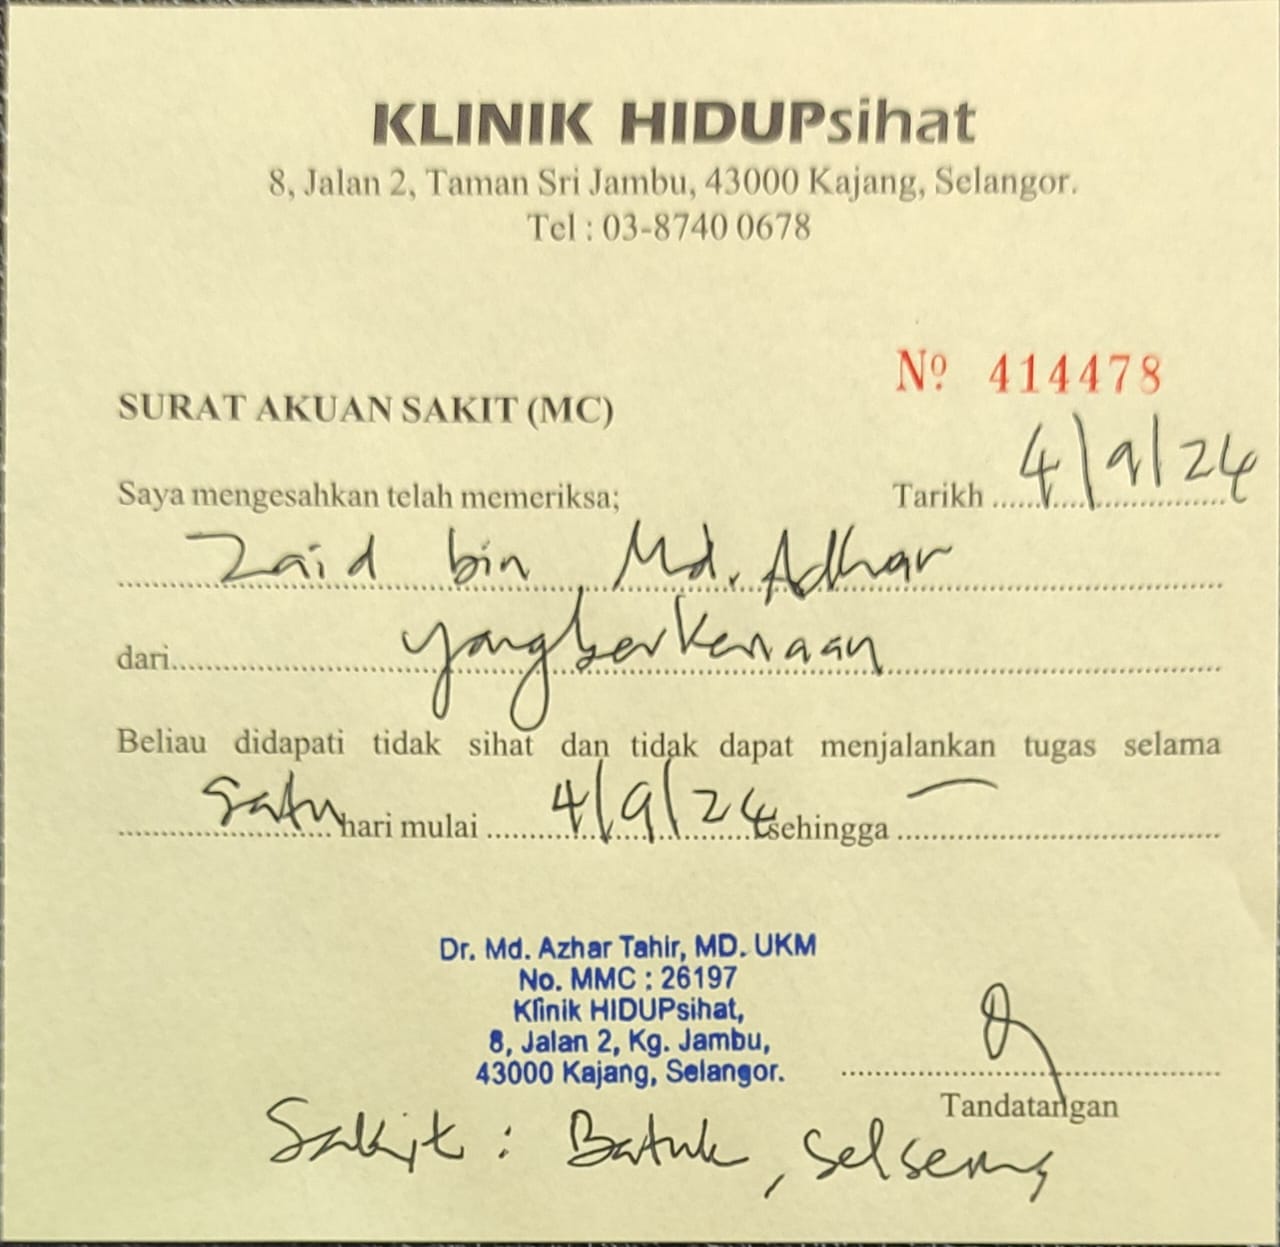 KLINIK HIDUPsihat
8, Jalan 2, Taman Sri Jambu, 43000 Kajang, Selangor.
Tel : 03-8740 0678
Nº 414478
SURAT AKUAN SAKIT (MC)
Saya mengesahkan telah memeriksa; Tarikh 4/9/24
Zaid bin Md. Adhar
dari yang berkenaan
Beliau didapati tidak sihat dan tidak dapat menjalankan tugas selama
satu hari mulai 4/9/24 sehingga —
Dr. Md. Azhar Tahir, MD. UKM
No. MMC : 26197
Klinik HIDUPsihat,
8, Jalan 2, Kg. Jambu,
43000 Kajang, Selangor.
Tandatangan
Sakit : Batuk, selsema